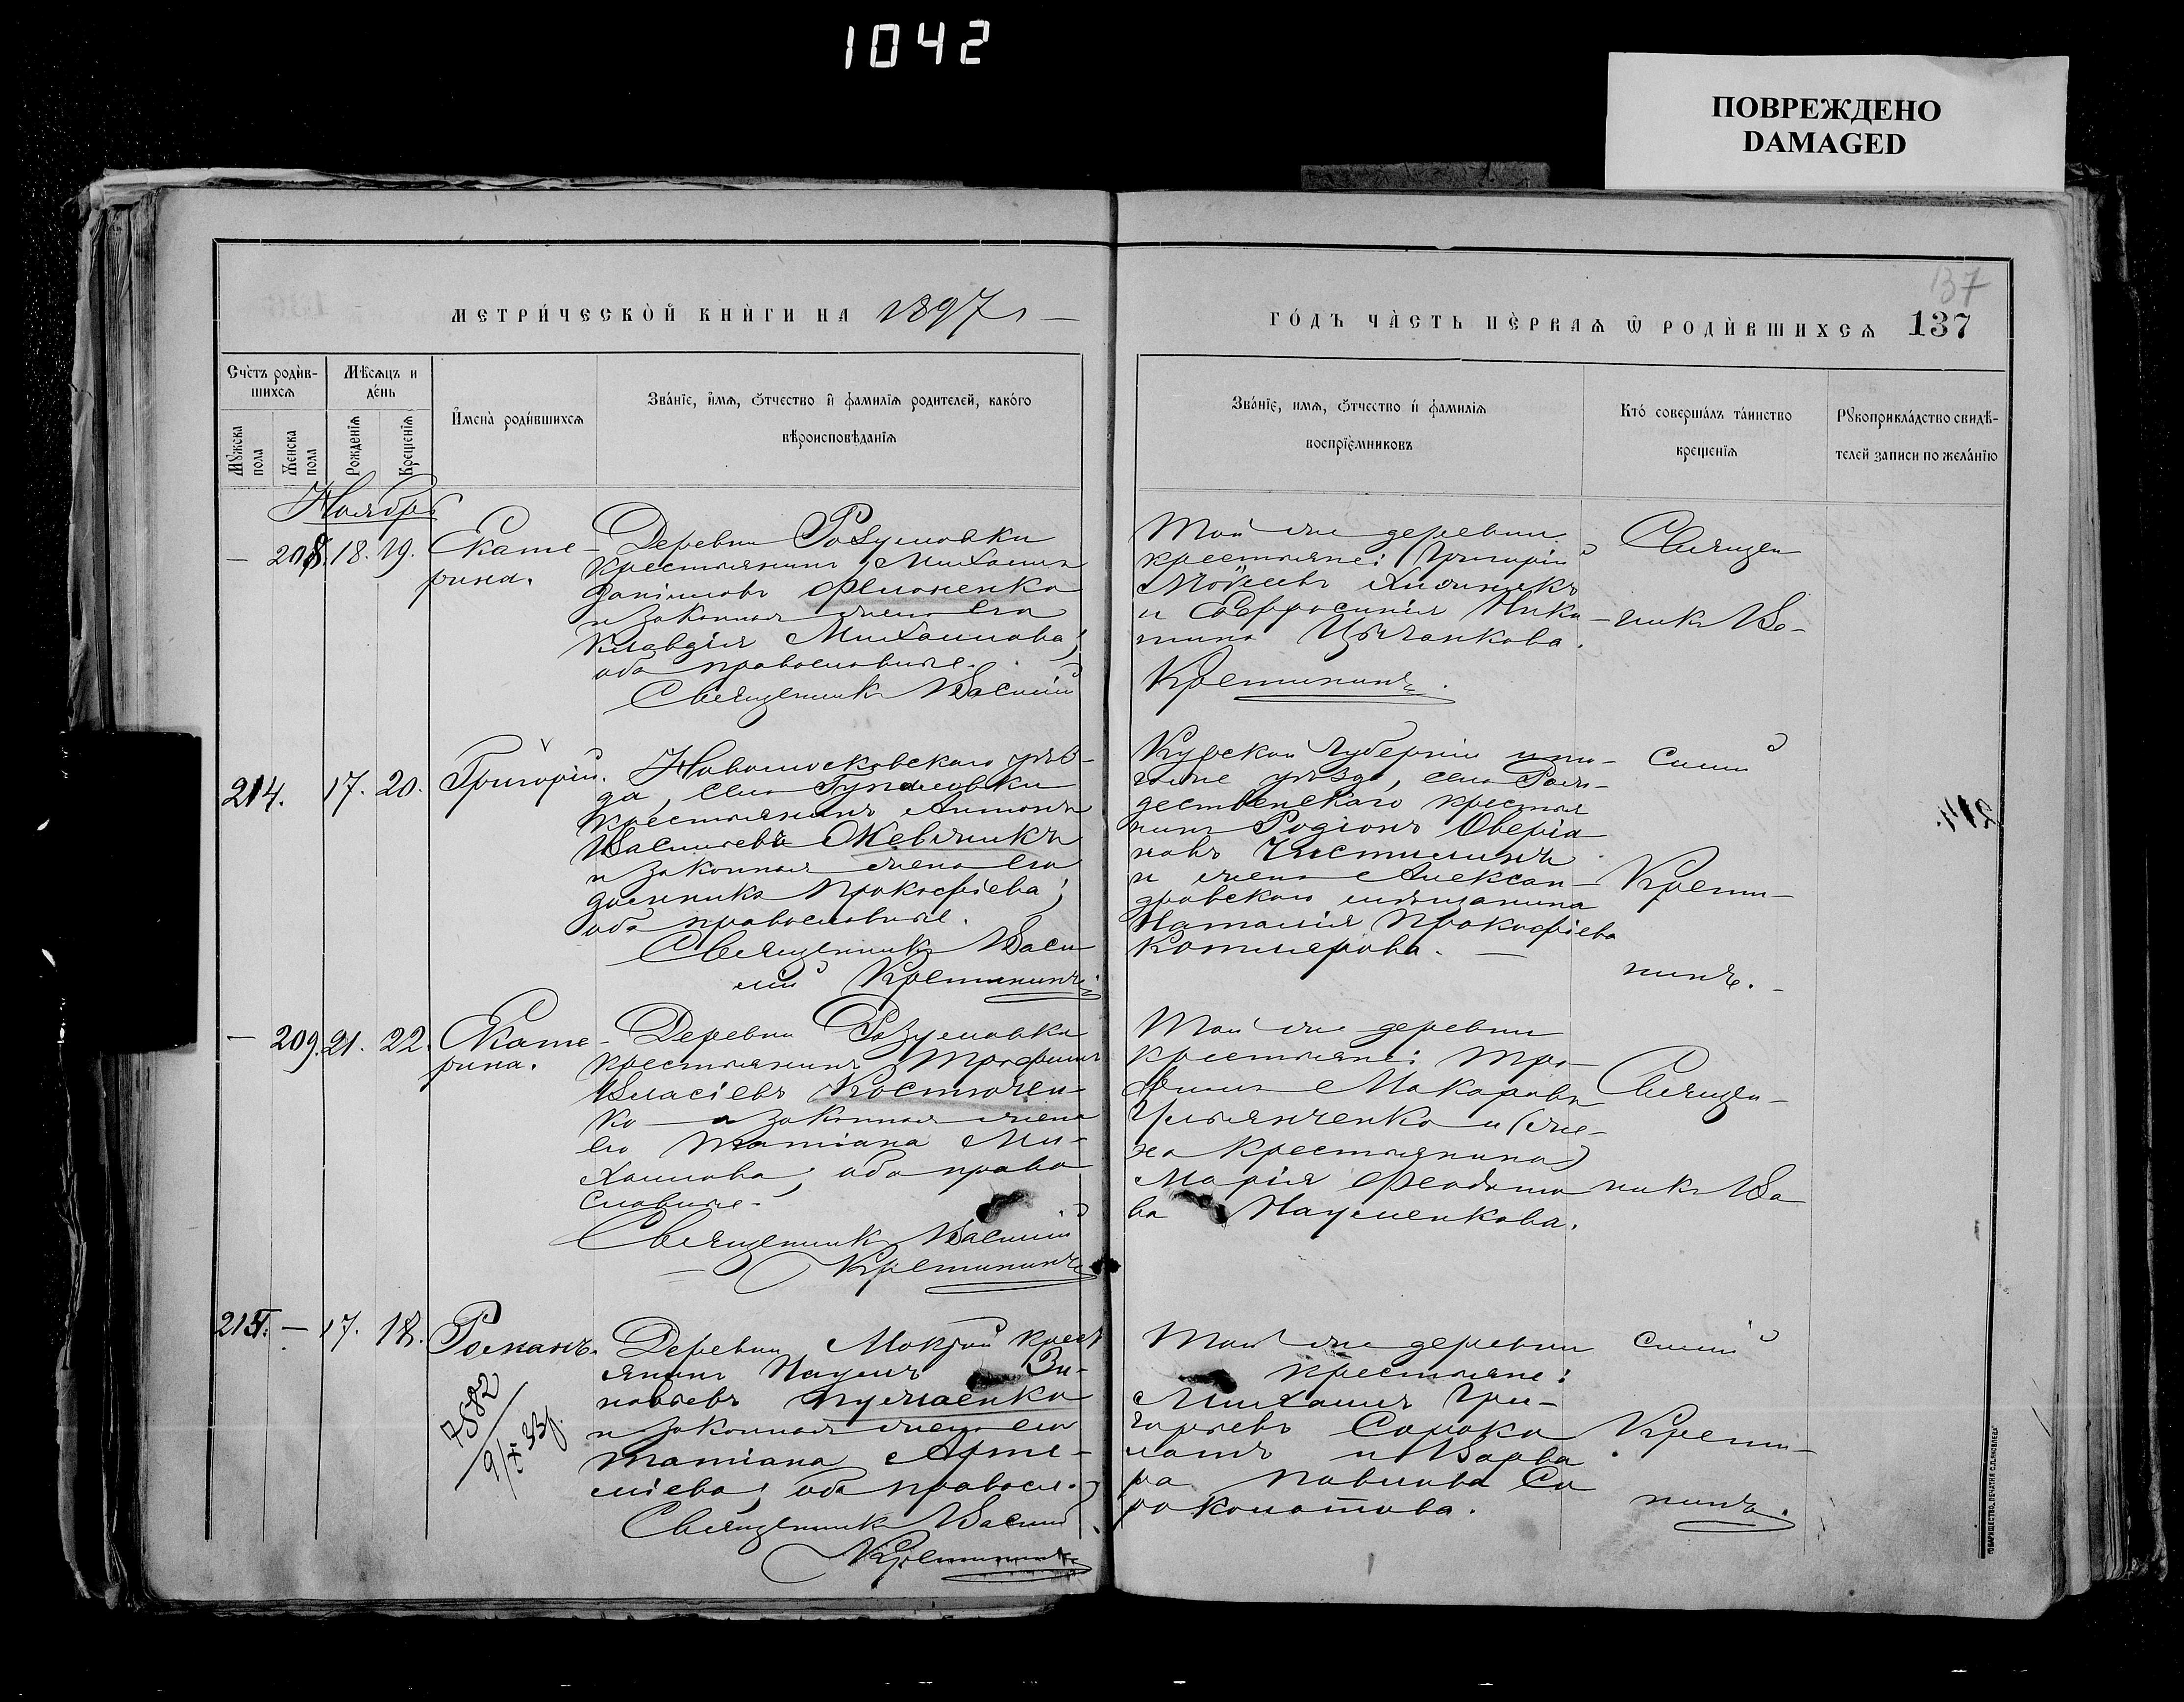 1042
ПОВРЕЖДЕНО
DAMAGED
137
МЕТРИ́ЧЕСКОЙ КНИ́ГИ НА 1897
ГО́ДЪ ЧА́СТЬ ПЕ́РВАѦ Ѿ РОДИ́ВШИХСѦ 137
Сче́тъ роди́в-
шихсѧ
Мꙋжска
пола
Женска
пола
Мѣ́сѧцъ и
де́нь
Рожденїѧ
Крещенїѧ
И҆мена̀ роди́вшихсѧ
Зва́нїе, и҆мѧ, ѻтчество и҆ фамилїѧ родителей, како́го
вѣроисповѣ́данїѧ
Зва́нїе, имѧ, ѻтчество и҆ фамилїѧ
воспрїе́мниковъ
Кто́ соверша́лъ та́инство
креще́нїѧ
Рꙋкоприкла́дство свидѣ́-
телей записи по жела́нїю
Ноябрь
— 208. 18. 19. Екате-
рина.
Деревни Розумовки
крестьянинъ Михаилъ
Даніиловъ Филоненко
и законная жена его
Клавдія Михаилова;
оба православные.
Священникъ Василій
Той же деревни
крестьяне: Григорій
Моѵсеевъ
и Евфросинія Ники-
тина Цыганкова.
Кретининъ.
Священ
никъ Ва-
214. 17. 20. Григорій.
Новомосковскаго уѣз-
да, села Гупаловки
крестьянинъ Антонъ
Васильевъ
и законная жена его
Домника Прокофіева;
оба православные.
Священникъ Васи
лій Кретининъ
Курской губерніи и то-
гоже уѣзда, села Рож-
дественскаго крестья
нинъ Родіонъ Оверіа
новъ Чистилинъ
и жена Алексан-
дровскаго мѣщанина
Наталія Прокофіева
Котлярова.
силій
Крети-
нинъ.
214.
— 209. 21. 22. Екате-
рина.
Деревни Розумовки
крестьянинъ Трофимъ
Власіевъ Костючен-
ко и законная жена
его Татіана Ми-
хаилова; оба право
славные.
Священникъ Василій
Кретининъ
Той же деревни
крестьяне: Тро-
фимъ Макаровъ
Ульянченко и (же-
на крестьянина)
Марія Феодото
ва Науменкова.
Священ-
никъ Ва
215. — 17. 18. Романъ.
7582
9/IX 33г.
Деревни Мокрой крест
янинъ Наумъ Зи-
новьевъ
и законная жена его
Татіана Арте-
міева; оба правосл.
Священникъ Василій
Кретининъ
Той же деревни
крестьяне:
Михаилъ Гри-
горьевъ Сороко
латъ и Варва
ра Павлова Со
роколатова.
силій
Крети-
нинъ.